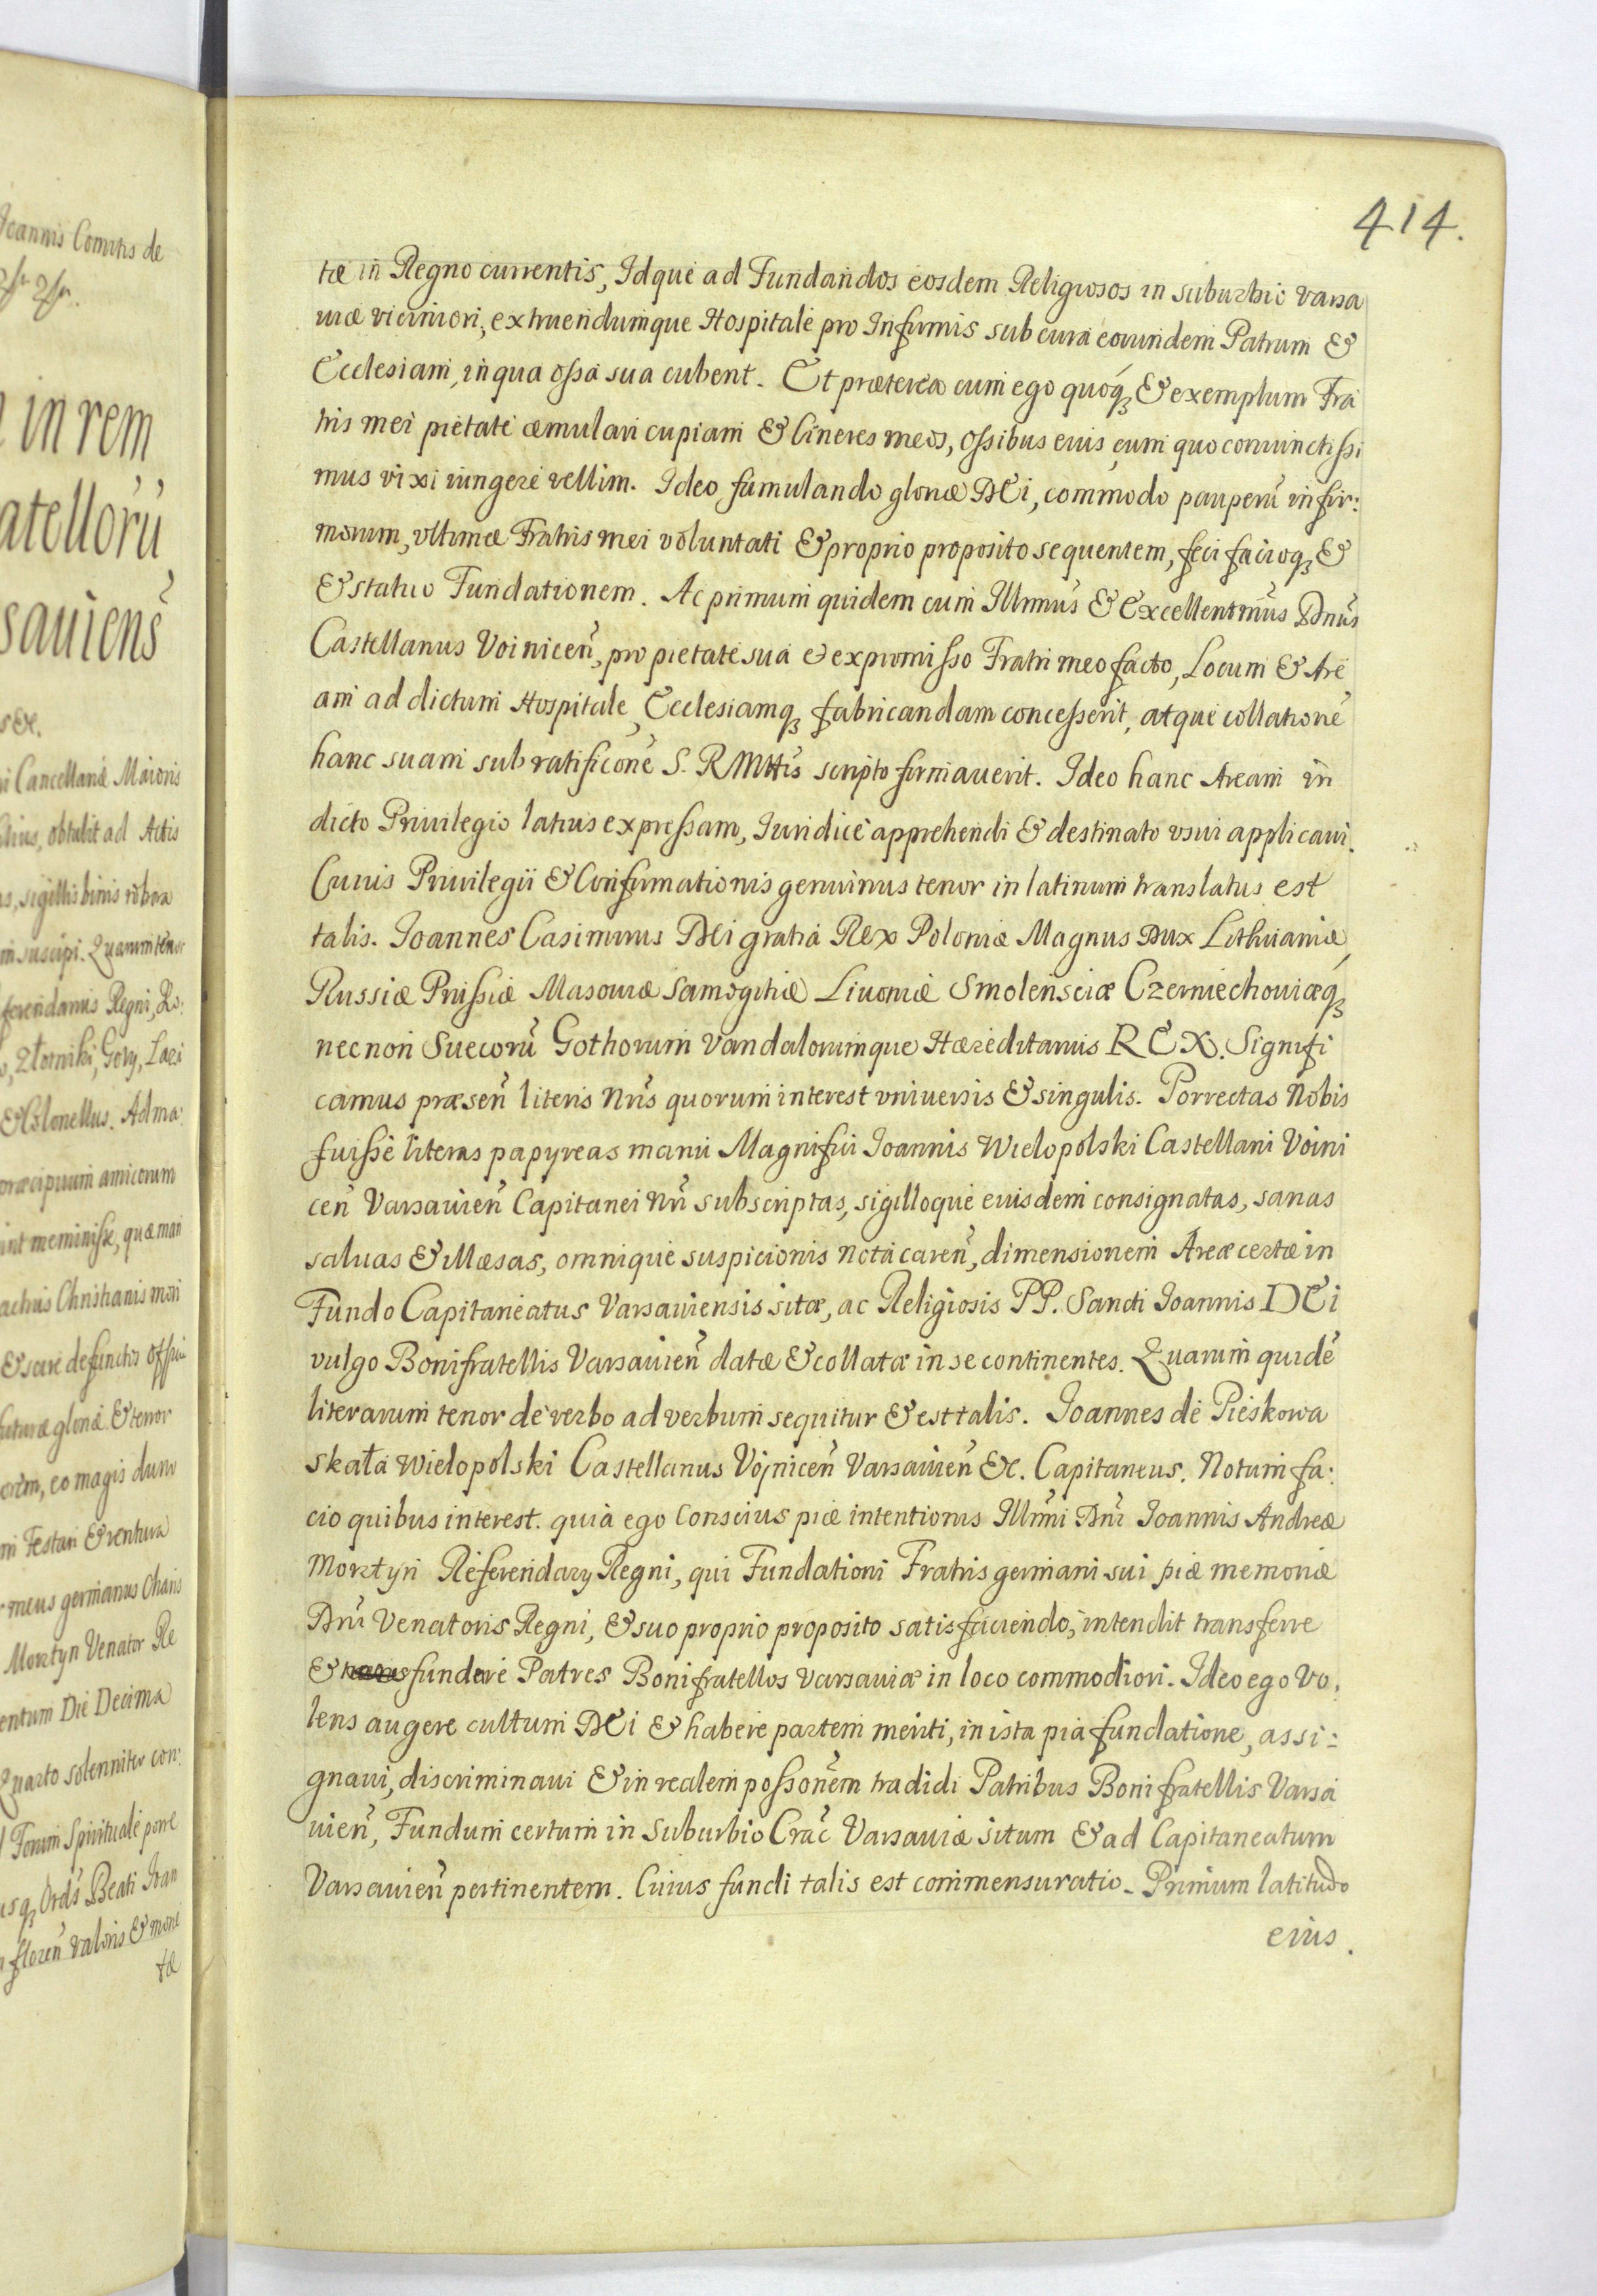 Joannis Comitis de
in rem
atelloru᷃
sauiens᷃
s &c.
ni Cancellariæ Maioris
obtulit ad Actis
as, sigillis binis robora
m suscipi. Quarum tenor
ferendarius Regni, Ro:
Złotniki, Gory, Lazi
& Colonellus. Ad ma:
præcipuum amicorum
int meminisse, quæ mari
Christianis mori
& scire defunctis
futuræ gloriæ & tenor
eo magis dum
ni Testari & ventura
meus germanus Charis
Morztyn Venator Re
entum Die Decima
Quarto solenniter con:
Forum Spirituale porre
usq; Ords᷃ Beati Joan
floren᷃ valoris & mone
tæ
414.
tæ in Regno currentis, Idque ad Fundandos eosdem Religiosos in suburbio Varsa
uiæ viciniori, extruendumque Hospitale pro Infirmis sub cura eorundem Patrum &
Ecclesiam, in qua ossa sua cubent. Et præterea cum ego quoq́; & exemplum Fra
tris mei pietate æmulari cupiam & Cineres meos, ossibus eius cum quo coniunctissi
mus vixi iungere vellim. Ideo famulando gloriæ DEi, commodo pauperu᷃ infir:
morum, vltimæ Fratris mei voluntati & proprio proposito sequentem, feci facioq; &
& statuo Fundationem. Ac primum quidem cum Illmus᷃ & Excellentmus᷃ Dnus᷃
Castellanus Voinicen᷃, pro pietate sua & ex promisso Fratri meo facto, Locum & Are
am ad dictum Hospitale, Ecclesiamq; fabricandam concesserit, atque collatione᷃
hanc suam sub ratificone᷃ S. R Mttis scripto firmauerit. Ideo hanc Aream in
dicto Priuilegio latius expressam, Iuridice apprehendi & destinato vsui applicaui.
Cuius Priuilegii & Confirmationis genuinus tenor in latinum translatus est
talis. Joannes Casimirus DEi gratia REx Poloniæ Magnus Dux Lithuaniæ,
Russiæ Prussiæ Masouiæ Samogitiæ Liuoniæ Smolensciæ Czerniechouiæq́;
necnon Suecoru᷃ Gothorum Vandalorumque Hæreditarius REX. Signifi
camus præsen᷃ literis Nris᷃ quorum interest vniuersis & singulis. Porrectas Nobis
fuisse literas papyreas manu Magnifici Joannis Wielopolski Castellani Voini
cen᷃ Varsauien᷃ Capitanei Nri᷃ subscriptas, sigilloque eiusdem consignatas, sanas
saluas & illæsas, omnique suspicionis nota caren᷃, dimensionem Areæ certæ in
Fundo Capitaneatus Varsauiensis sitæ, ac Religiosis PP. Sancti Joannis DEi
vulgo Bonifratellis Varsauien᷃ datæ & collatæ in se continentes. Quarum quide᷃
literarum tenor de verbo ad verbum sequitur & est talis. Joannes de Pieskowa
skała Wielopolski Castellanus Vojnicen᷃ Varsauien᷃ &c. Capitaneus. Notum fa:
cio quibus interest. quia ego Conscius piæ intentionis Illmi᷃ Dni᷃ Joannis Andreæ
Morztyn Referendary Regni, qui Fundationi Fratris germani sui piæ memoriæ
Dni᷃ Venatoris Regni, & suo proprio proposito satisfaciendo, intendit transferre
& fundare Patres Bonifratellos Varsauiæ in loco commodiori. Ideo ego Vo,
lens augere cultum DEi & habere partem meriti, in ista pia fundatione, assi:
gnaui, discriminaui & in realem possone᷃m tradidi Patribus Bonifratellis Varsa
uien᷃, Fundum certum in Suburbio Crac᷃ Varsauiæ situm & ad Capitaneatum
Varsauien᷃ pertinentem. Cuius fundi talis est commensuratio. Primum latitudo
eius.